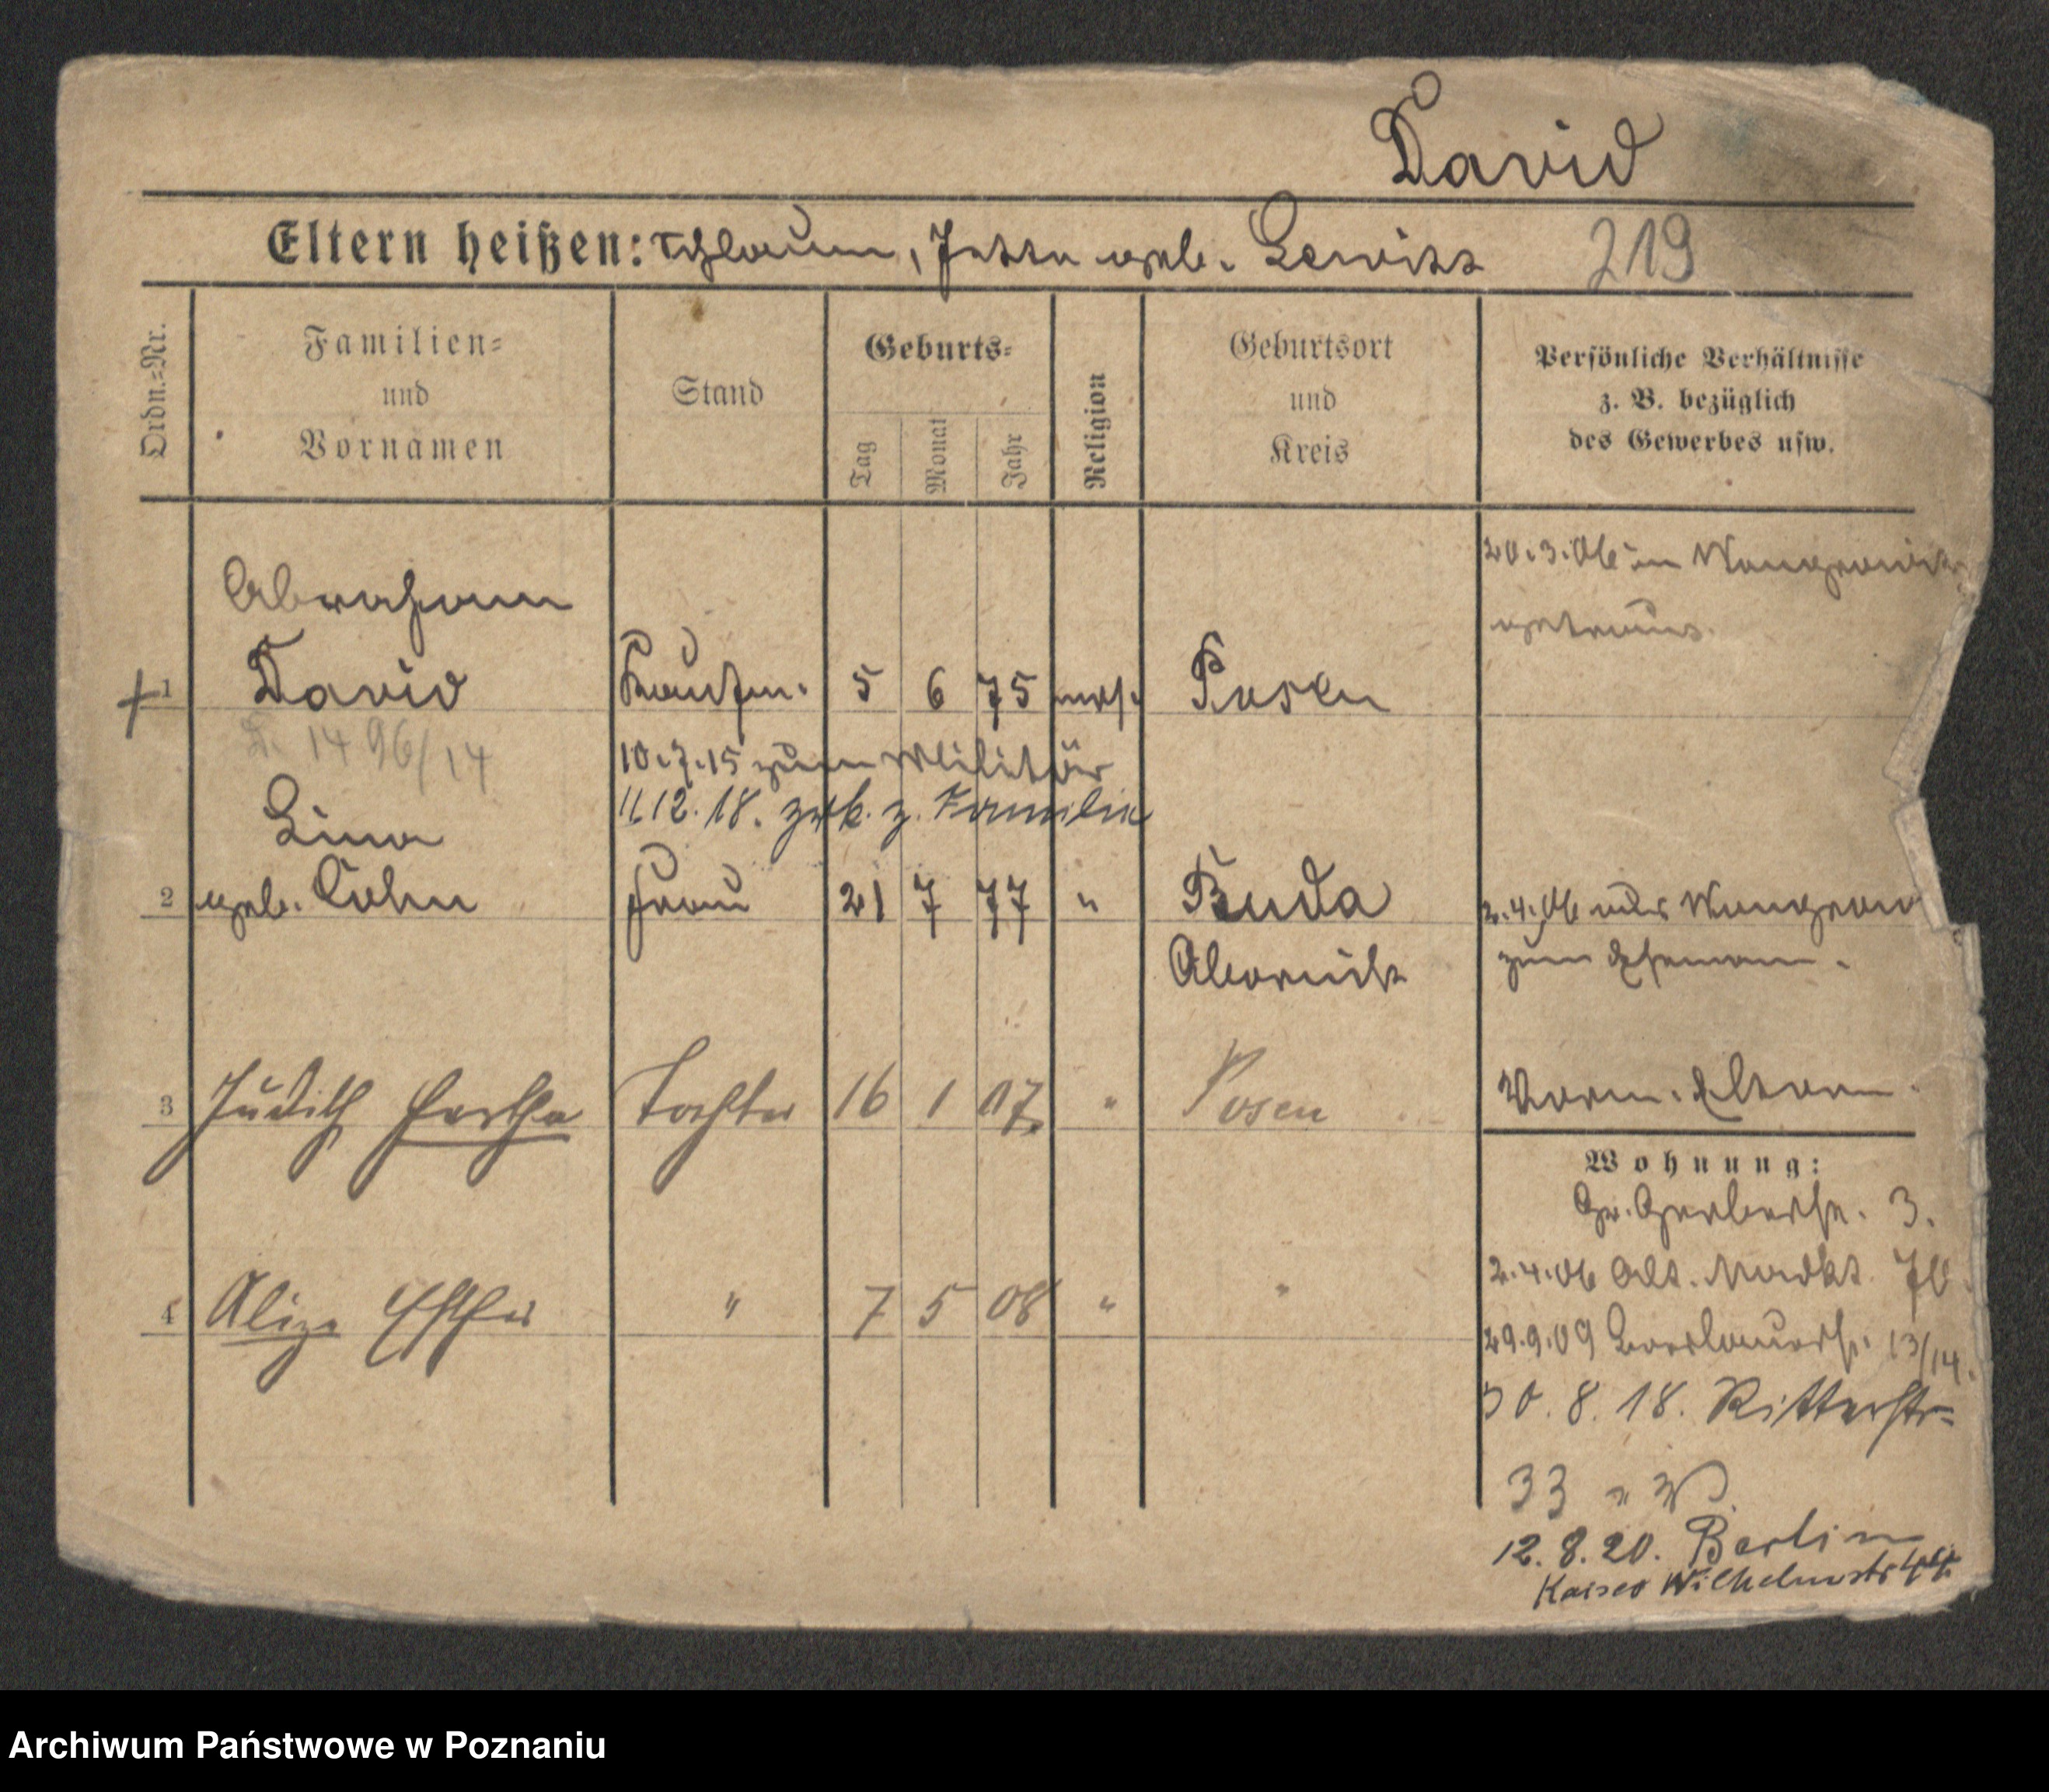 David
Eltern heißen: Schloum, Jette geb. Lewiss 219
Ordn.=Nr. Familien= und Vornamen Stand Geburts= Tag Monat Jahr Religion Geburtsort und Kreis Persönliche Verhältnisse z. B. bezüglich des Gewerbes usw.
20.3.06 in Wongrowitz
getraut.
Abraham
1 David Kaufm. 5 6 75 mos. Posen
1496/14
10.7.15 zum Militär
11.12.18. zrk. z. Familie
Lina
2 geb. Cohn Frau 21 7 77 " Buda
Obornick
2.4.06 aus Wongrow
zum Ehemann.
3 Judith Hertha Tochter 16 1 07. " Posen
Vorm. Eltern.
4 Alize Esther " 7 5 08 " "
Wohnung:
Gr. Gerberstr. 3.
2.4.06 Alt. Markt. 70
29.9.09 Breslauerstr. 13/14.
30.8.18. Ritterstr=
33
12.8.20. Berlin
Kaiser Wilhelmstr
Archiwum Państwowe w Poznaniu